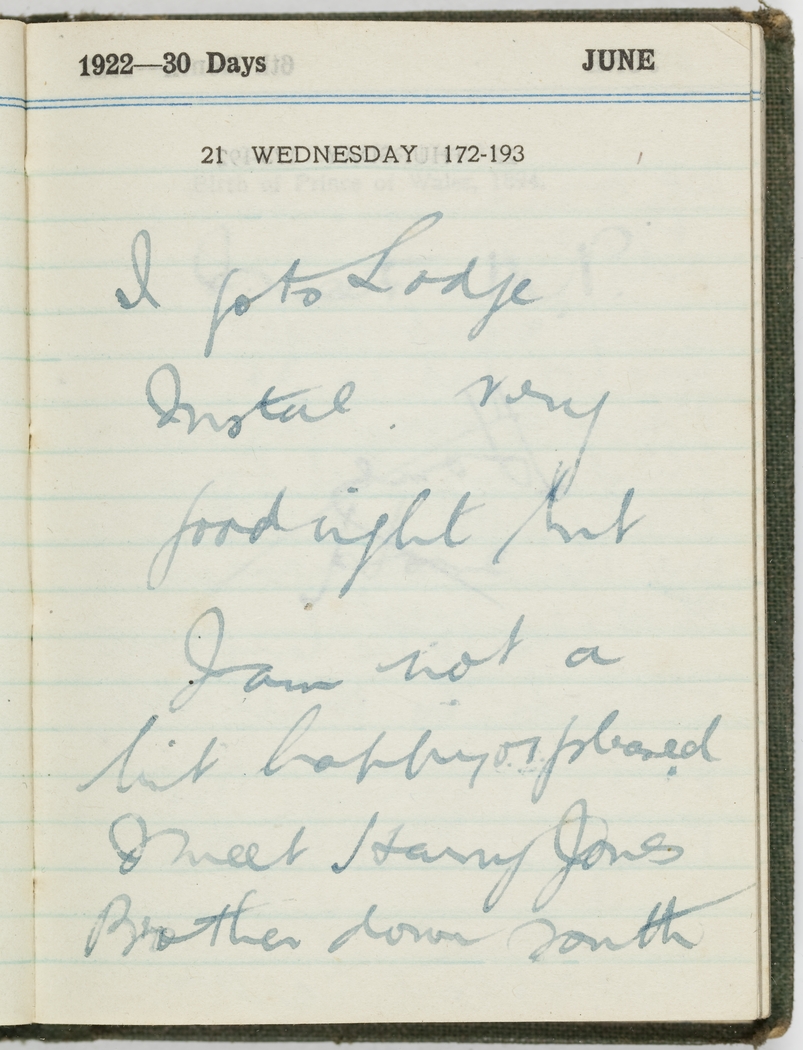 1922—30 Days JUNE
21 WEDNESDAY 172-193
I go to Lodge
Instal very
good night but
I am not a
bit happy or pleased
I meet Harry Jones
Brother down south